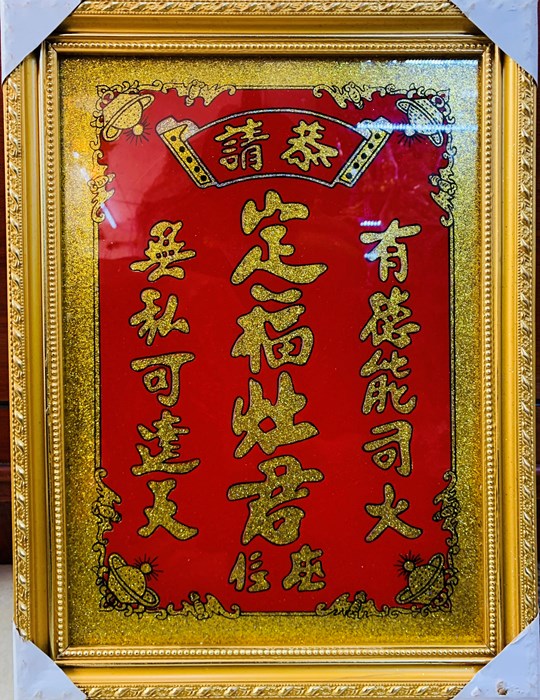 恭請
有德能司火
定福灶君
座位
無私可達天